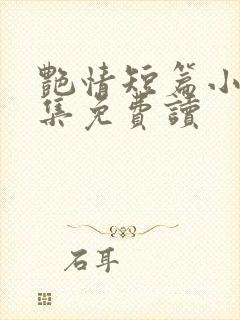 艷情短篇小
集免費讀
石耳